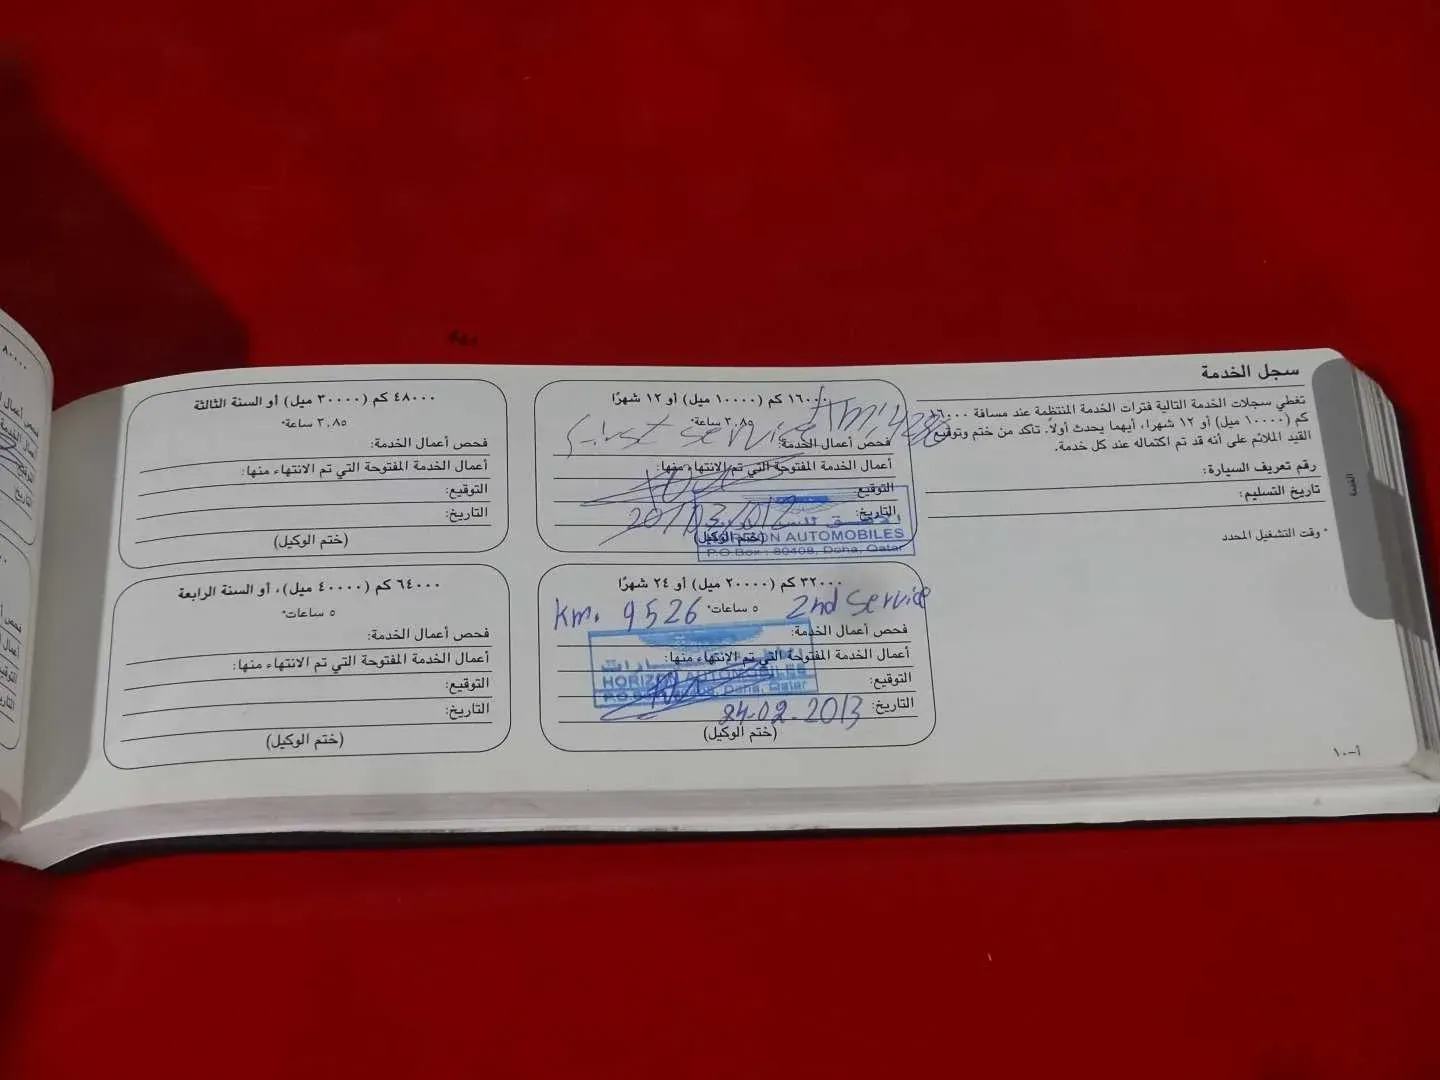 سجل الخدمة
تغطي سجلات الخدمة التالية فترات الخدمة المنتظمة عند مسافة ١٦٠٠٠
كم (١٠٠٠٠ ميل) أو ١٢ شهرا، أيهما يحدث أولاً. تاكد من ختم وتوقيع
القيد الملائم على أنه قد تم اكتماله عند كل خدمة.
رقم تعريف السيارة:
تاريخ التسليم:
* وقت التشغيل المحدد
أ-١٠
١٦٠٠٠ كم (١٠٠٠٠ ميل) أو ١٢ شهرًا
first service
فحص أعمال الخدمة:
أعمال الخدمة المفتوحة التي تم الانتهاء منها:
التوقيع
التاريخ:
(ختم الوكيل)
HORIZON AUTOMOBILES
P.O.Box : 80408, Doha, Qatar
٣٢٠٠٠ كم (٢٠٠٠٠ ميل) أو ٢٤ شهرًا
٥ ساعات*
2nd service
Km. 9526
فحص أعمال الخدمة:
أعمال الخدمة المفتوحة التي تم الانتهاء منها:
HORIZON AUTOMOBILES
Doha, Qatar
التوقيع:
التاريخ:
24-02-2013
(ختم الوكيل)
٤٨٠٠٠ كم (٣٠٠٠٠ ميل) أو السنة الثالثة
٣,٨٥ ساعة*
فحص أعمال الخدمة:
أعمال الخدمة المفتوحة التي تم الانتهاء منها:
التوقيع:
التاريخ:
(ختم الوكيل)
٦٤٠٠٠ كم (٤٠٠٠٠ ميل)، أو السنة الرابعة
٥ ساعات*
فحص أعمال الخدمة:
أعمال الخدمة المفتوحة التي تم الانتهاء منها:
التوقيع:
التاريخ:
(ختم الوكيل)